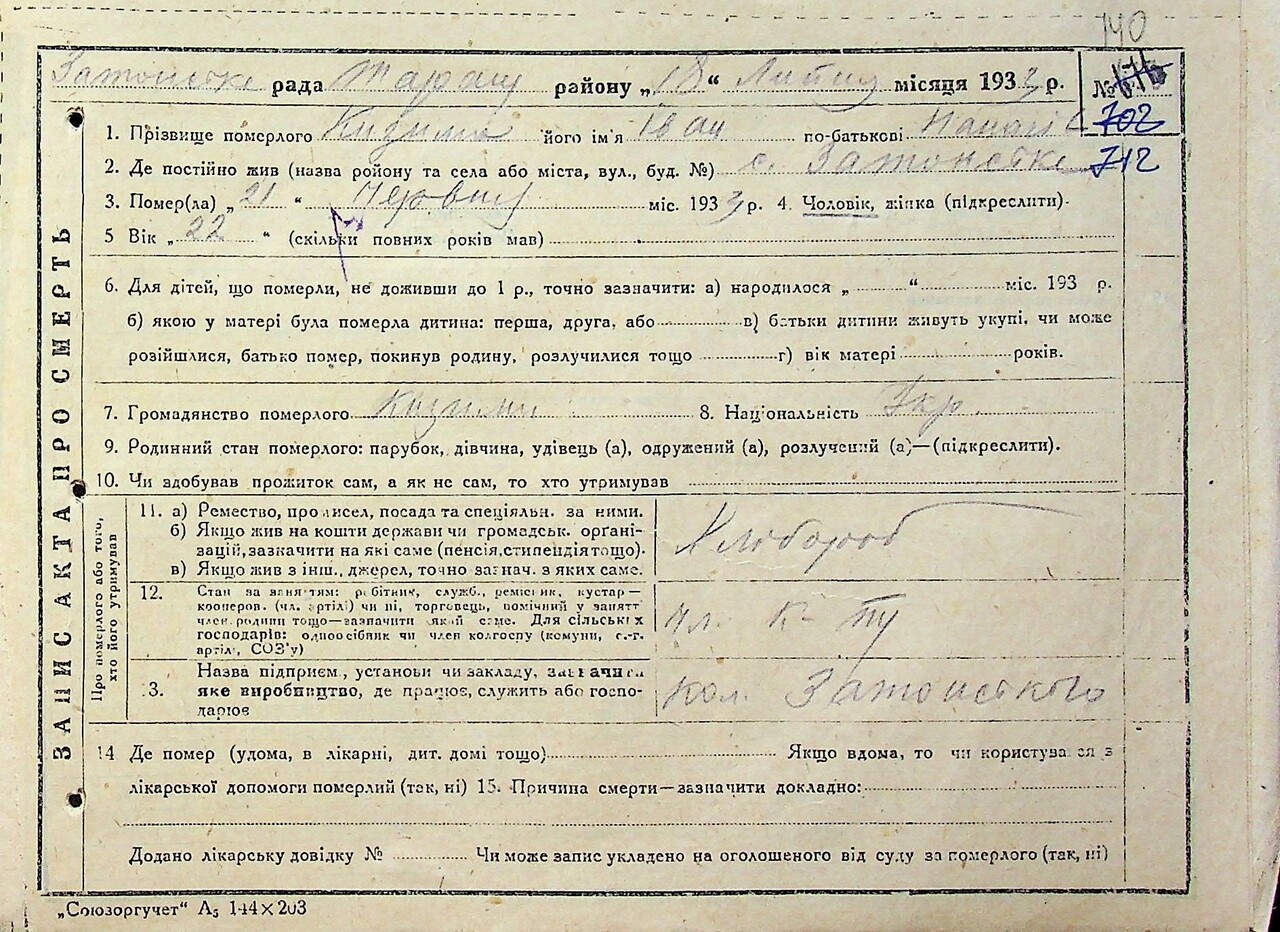 140
рада району „18“ Липня місяця 1933 р. №
702
712
1. Прізвище померлого його ім'я Іван по-батькові
2. Де постійно жив (назва району та села або міста, вул., буд. №) с.
3. Помер(ла) „21“ Червня міс. 1933 р. 4. Чоловік, жінка (підкреслити).
5 Вік „22“ (скільки повних років мав)
6. Для дітей, що померли, не доживши до 1 р., точно зазначити: а) народилося „ “ міс. 193 р.
б) якою у матері була померла дитина: перша, друга, або в) батьки дитини живуть укупі, чи може
розійшлися, батько помер, покинув родину, розлучилися тощо г) вік матері років.
7. Громадянство померлого 8. Національність Укр
9. Родинний стан померлого: парубок, дівчина, удівець (а), одружений (а), розлучений (а)—(підкреслити).
10. Чи здобував прожиток сам, а як не сам, то хто утримував
ЗАПИС АКТА ПРО СМЕРТЬ
Про померлого або того, хто його утримував
11. а) Ремество, промисел, посада та спеціяльн. за ними.
б) Якщо жив на кошти держави чи громадськ. орґані-
зацій, зазначити на які саме (пенсія, стипендія тощо).
в) Якщо жив з інш., джерел, точно зазнач. з яких саме.
Хлібороб
12. Стан за заняттям: робітник, служб., ремісник, кустар—
кооперов. (чл. артілі) чи ні, торговець, помічний у занятт
член родини тощо—зазначити який саме. Для сільських
господарів: одноосібник чи член колгоспу (комуни, с.-г.
артіл, СОЗ'у)
чл. к-
13. Назва підприєм., установи чи закладу, зазначити
яке виробництво, де працює, служить або госпо-
дарює
кол.
14 Де помер (удома, в лікарні, дит. домі тощо) Якщо вдома, то чи користувався з
лікарської допомоги померлий (так, ні) 15. Причина смерти—зазначити докладно:
Додано лікарську довідку № Чи може запис укладено на оголошеного від суду за померлого (так, ні)
„Союзоргучет“ А₅ 144×203